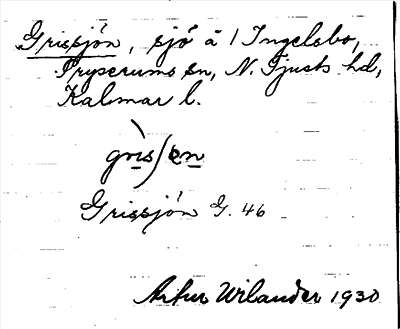 Grissjön, sjö å 1 Ingelsbo,
Tryserums sn, N. Tjusts hd,
Kalmar l.
Grissjön G. 46
Artur Wilander 1930